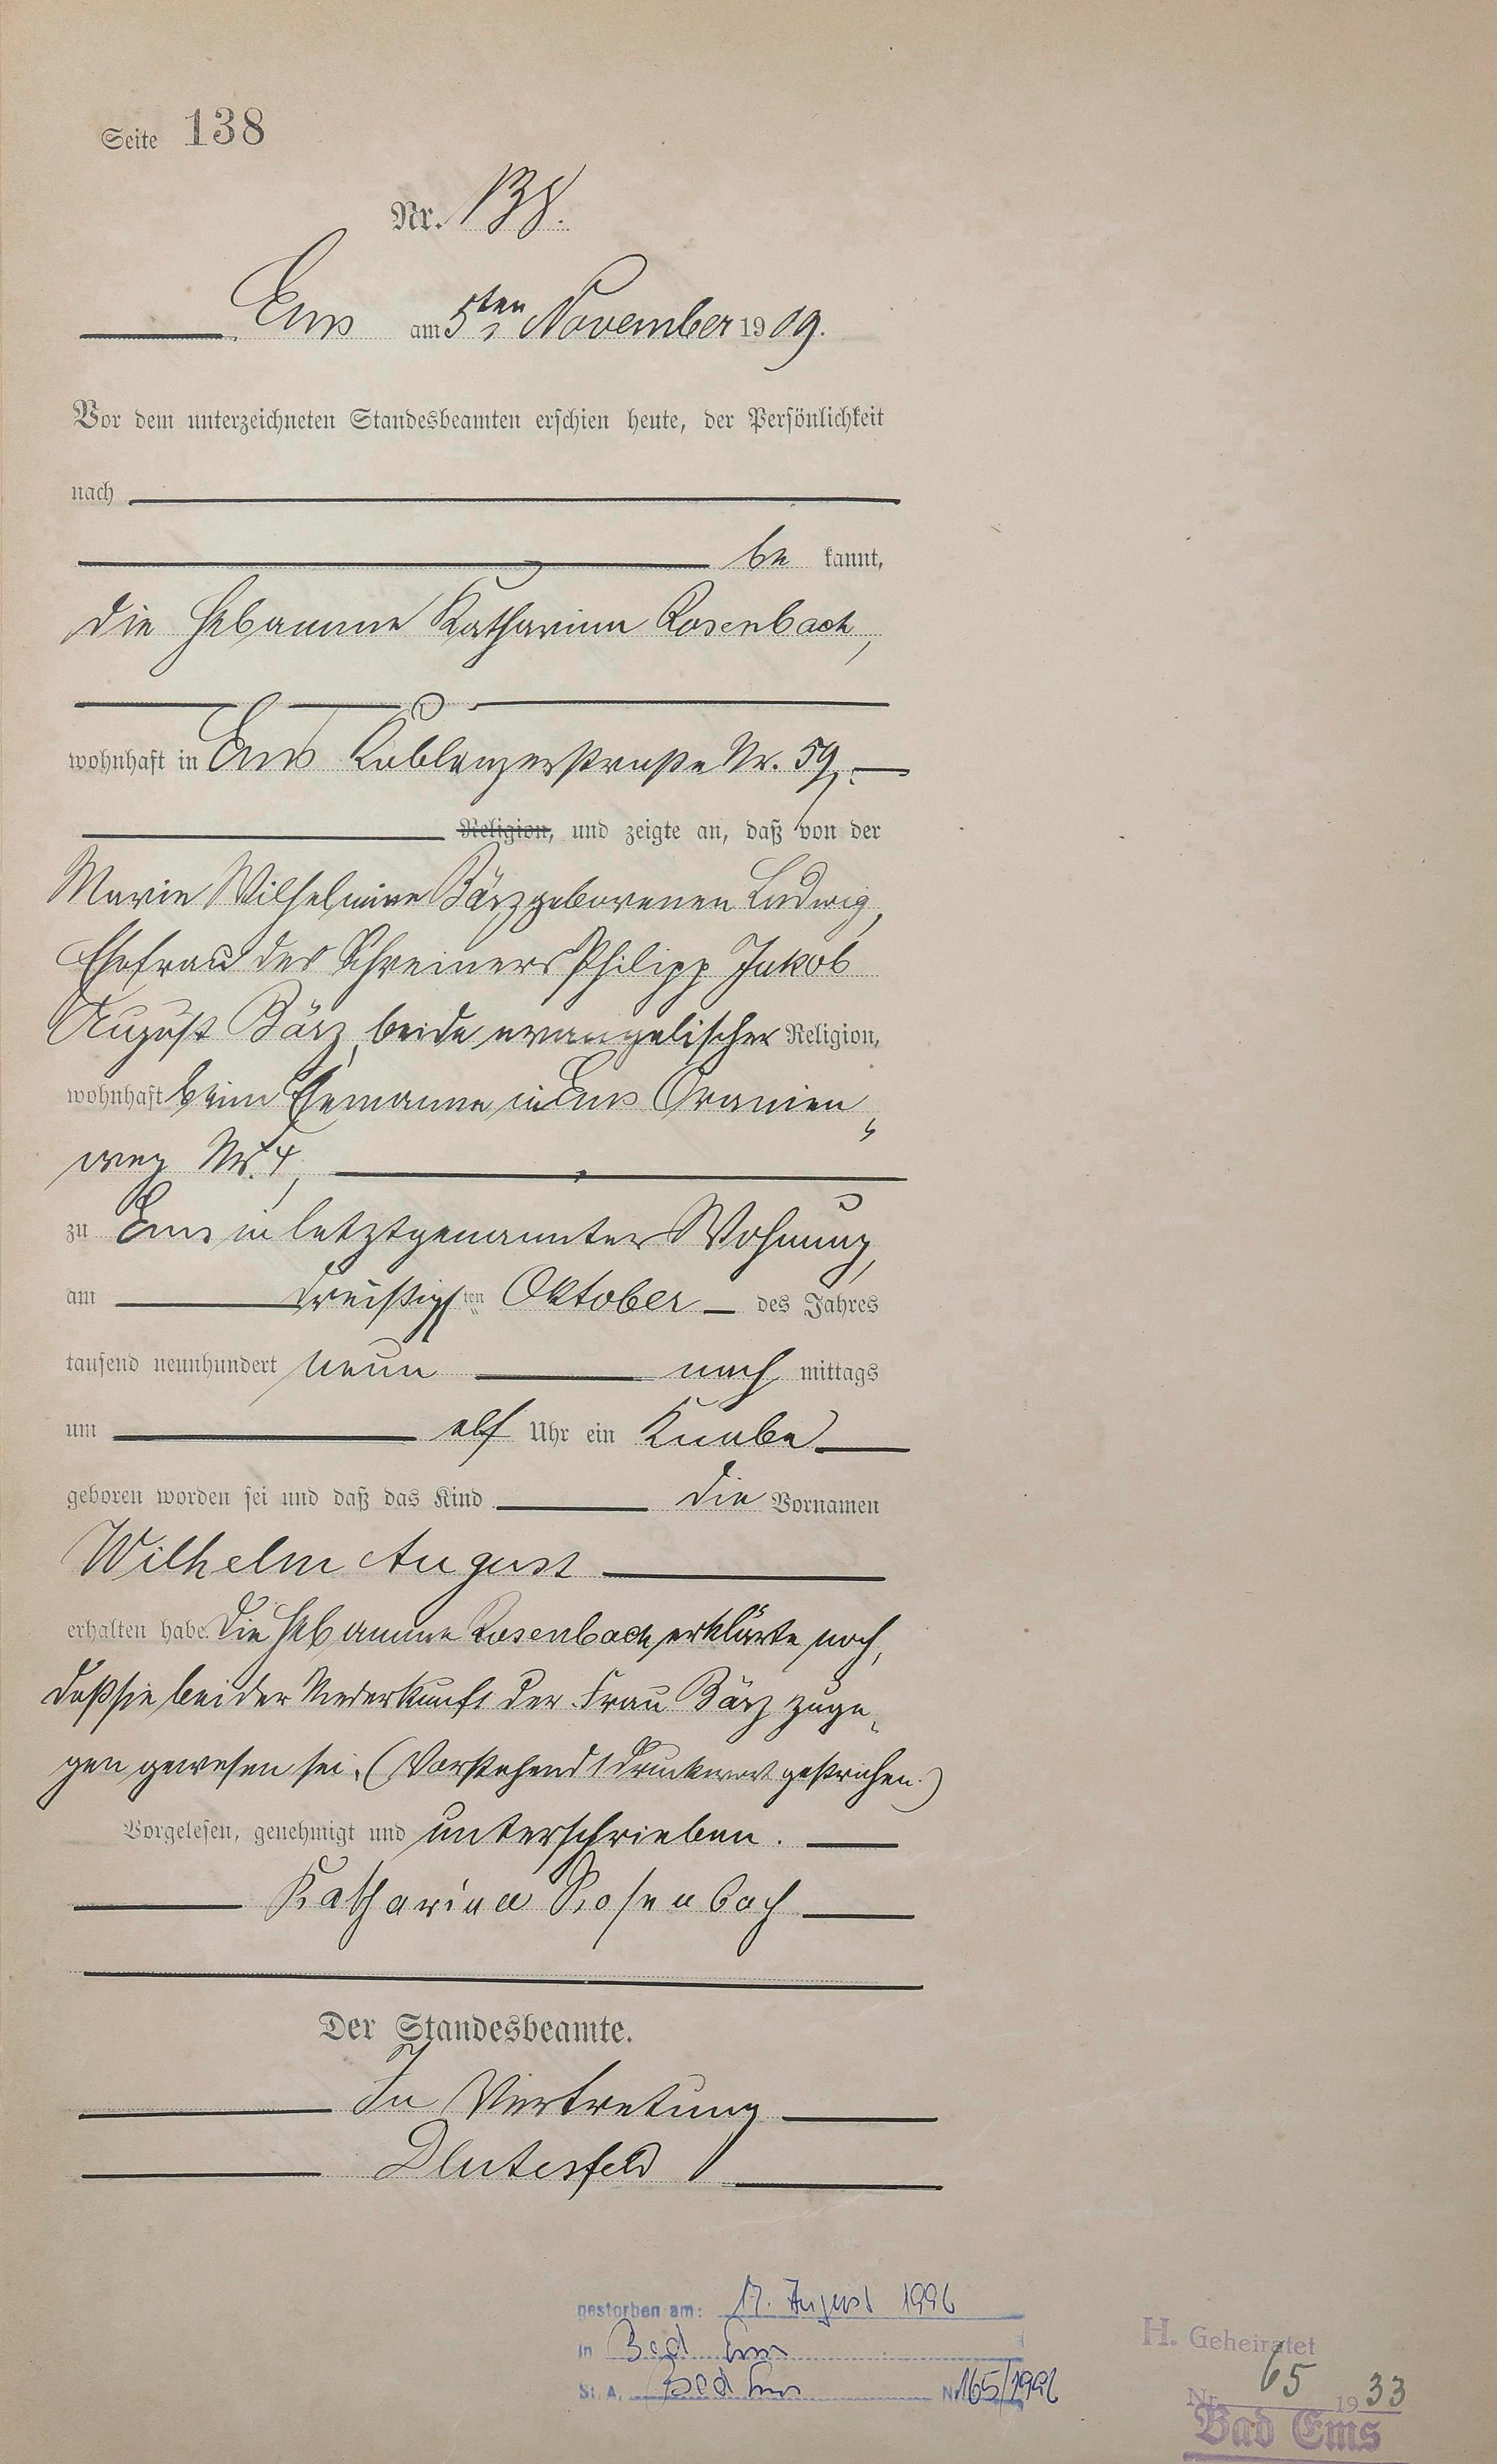 Seite 138
Nr. 138.
Ems am 5ten November 1909.
Vor dem unterzeichneten Standesbeamten erschien heute, der Persönlichkeit
nach
be kannt,
die Hebamme Katharina Rosenbach,
wohnhaft in Ems Koblenzerstraße Nr. 59,
Religion, und zeigte an, daß von der
Marie Wilhelmine Bärz geborenen Ludwig,
Ehefrau des Schreiners Philipp Jakob
August Bärz, beide evangelischer Religion,
wohnhaft beim Ehemanne in Ems Oranien-
weg Nr. 4,
zu Ems in letztgenannter Wohnung,
am dreißigsten Oktober des Jahres
tausend neunhundert neun nach mittags
um elf Uhr ein Knabe
geboren worden sei und daß das Kind die Vornamen
Wilhelm August
erhalten habe. Die Hebamme Rosenbach erklärte noch,
daß sie bei der Niederkunft der Frau Bärz zuge-
gen gewesen sei. (Vorstehend 1 Druckwort gestrichen.)
Vorgelesen, genehmigt und unterschrieben.
Katharina Rosenbach
Der Standesbeamte.
In Vertretung
gestorben am: 17. August 1996
in Bad Ems
St. A. Bad Ems Nr. 165/1996
H. Geheiratet
Nr. 65 1933
Bad Ems